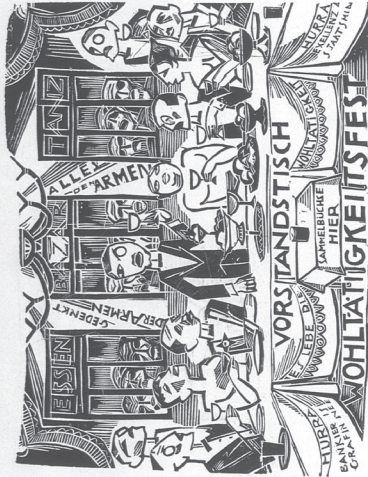 ESSEN
BAZAR
TANZ
GEDENKT
DER ARMEN
ALLES
DEN ARMEN
VORSTANDSTISCH
ES LEBE DIE
WOHLTÄTIGKEIT
SAMMELBÜCHSE
HIER
BANKIER
GRÄFIN
HURRA
EXZELLENZ
STAATSMIN
WOHLTÄTIGKEITSFEST